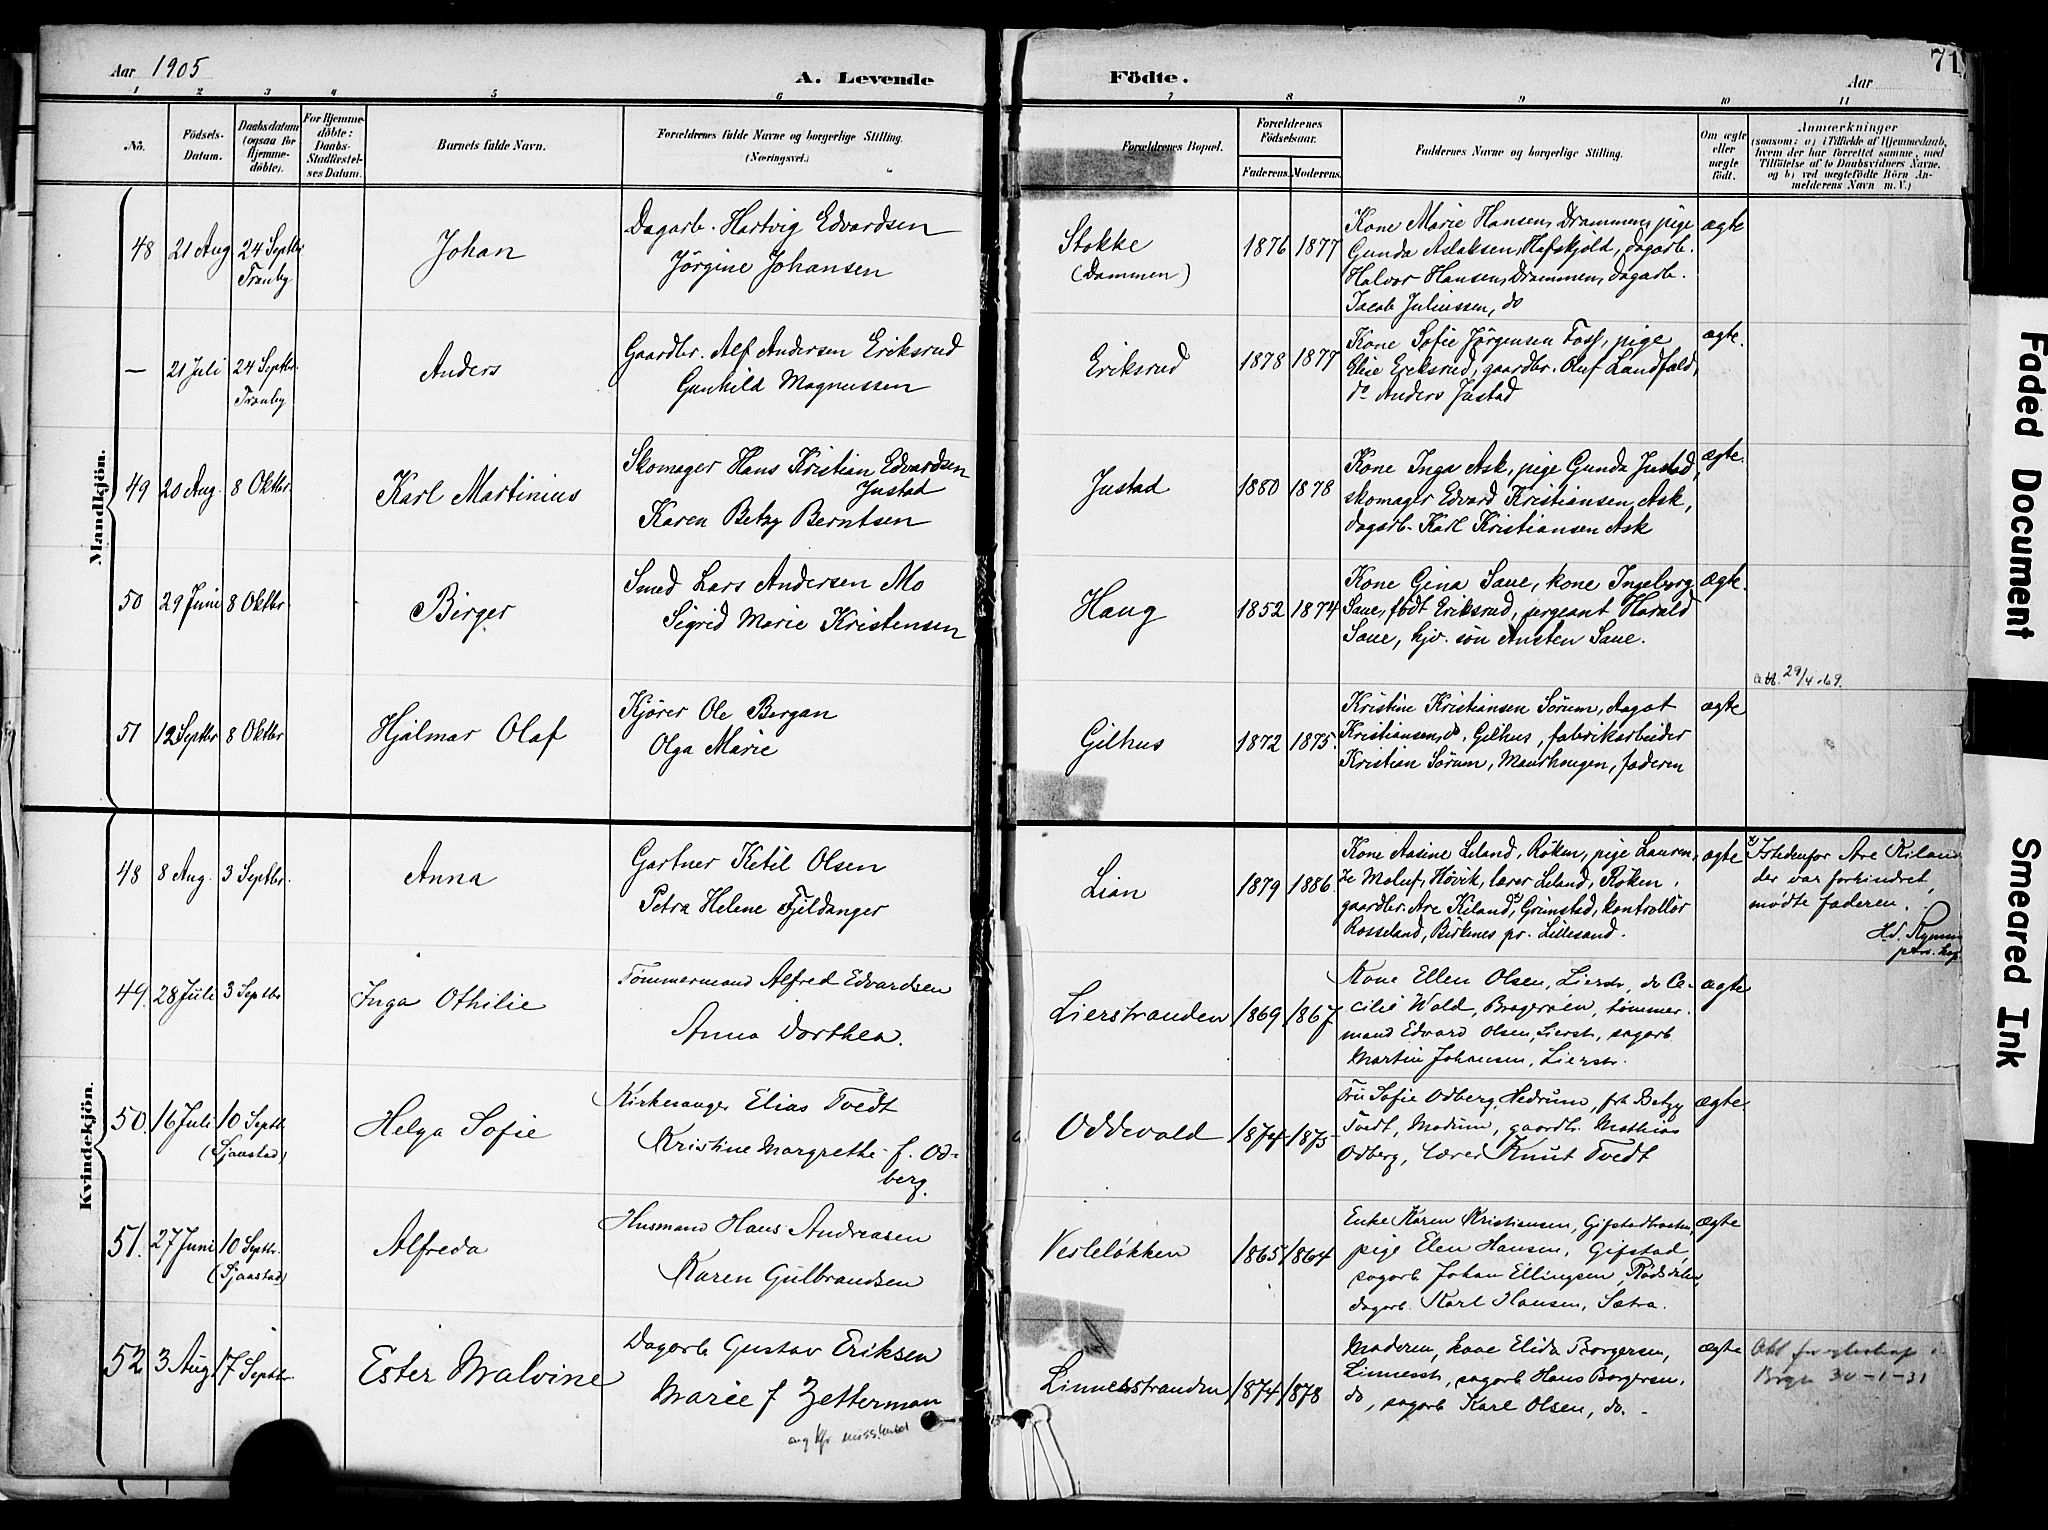 Aar 1905
A. Levende Födte.
Aar
71
1 2 3 4 5 6 7 8 9 10 11
No.
Födsels-Datum.
Daabsdatum (ogsaa for Hjemme-döbte).
For Hjemme-döbte: Daabs-Stadfæstel-ses Datum.
Barnets fulde Navn.
Forældrenes fulde Navne og borgerlige Stilling.
(Næringsvei.)
Forældrenes Bopæl.
Forældrenes Födselsaar.
Faderens. Moderens.
Faddernes Navne og borgerlige Stilling.
Om ægte eller uægte födt.
Anmærkninger
(saasom: a) i Tilfælde af Hjemmedaab,
hvem der har forrettet samme, med
Tilföielse af to Daabsvidners Navne.
og b) ved uægtefödte Börn An-
melderens Navn m. V.)
Mandkjön.
48 21 Aug 24 Septbr Tranby
Johan
Dagarb. Hartvig Edvardsen
Jørgine Johansen
Stokke
(Dammen)
1876 1877
Kone Marie Hansen, Drammen, pige
Gunda Aslaksen, Hafskjold, dagarb.
Halvor Hansen, Drammen, dagarb.
Jacob Juliussen, do
ægte
— 21 Juli 24 Septbr. Tranby
Anders
Gaardbr. Alf Andersen Eriksrud
Gunhild Magnussen
Eriksrud
1878 1877
Kone Sofie Jørgensen Fosf, pige
Elise Eriksrud, gaardbr. Oluf Landfald,
do Anders Justad
ægte.
49 20 Aug. 8 Oktbr.
Karl Martinius
Skomager Hans Kristian Edvardsen
Justad
Karen Betzy Berntsen
Justad
1880 1878
Kone Inga Ask, pige Gunda Justad,
skomager Edvard Kristiansen Ask,
dagarb. Karl Kristiansen Ask
ægte.
50 29 Juni 8 Oktbr.
Birger
Smed Lars Andersen Mo
Sigrid Marie Kristensen
Haug
1852 1874
Kone Gina Saue, kone Ingeborg
Saue, født Eriksrud, sergeant Harald
Saue, hjv. søn Austen Saue.
ægte.
att. 29/4.69.
51 12 Septbr 8 Oktbr
Hjalmar Olaf
Kjører Ole Bergan
Olga Marie
Gilhus
1872 1875.
Kristine Kristiansen Sørum, Aagot
Kristiansen, do. Gilhus, fabrikarbeider
Kristian Sørum, Maurhougen, faderen
ægte
Kvindekjön.
48 8 Aug. 3 Septbr.
Anna
Gartner Ketil Olsen
Petra Helene Fjeldanger
Lian
1879 1886.
Kone Aasine Leland, Røken, pige Lauren-
ze Moluf, Høvik, lærer Leland, Røken,
gaardbr. Are Kiland, Grimstad, kontrollør
Rosseland, Birkenes pr. Lillesand.
ægte
Istedenfor Are Kiland
der var forhindret,
mødte faderen.
49. 28 Juli 3 Septbr
Inga Othilie
Tømmermand Alfred Edvardsen
Anna Dorthea.
Lierstranden
1869 1867
Kone Ellen Olsen, Lierstr, do Ce-
cilie Wold, Bragerøen, tømmer-
mand Edward Olsen, Lierstr., sagarb
Martin Johansen, Lierstr.
ægte
50. 16 Juli 10 Septbr (Sjaastad)
Helga Sofie
Kirkesanger Elias Tvedt
Kristine Margrethe f. Od-
berg.
Oddevald
1874 1875
Fru Sofie Odberg, Hedrum, frk Betzy
Tvedt, Modum, gaardbr. Mathias
Odberg, lærer Knut Tvedt
ægte
51. 27 Juni 10 Septbr. (Sjaastad)
Alfreda
Husmand Hans Andreasen
Karen Gulbrandsen
Vesleløkken
1865 1864
Enke Karen Kristiansen, Gifstadbraaten,
pige Elen Hansen, Gifstad,
sagarb Johan Ellingsen,
dagarb. Karl Hansen, Sætra.
ægte
52 3 Aug 17 Septbr.
Ester Malvine
Dagarb Gustav Eriksen
Marie f Zetterman
Linnesstranden
1874 1878
Moderen, kone Elida Borgersen,
Linnesstr, sagarb Hans Borgersen,
do, sagarb Karl Olsen, do.
ægte
30-1-31
Faded Document
Smeared Ink